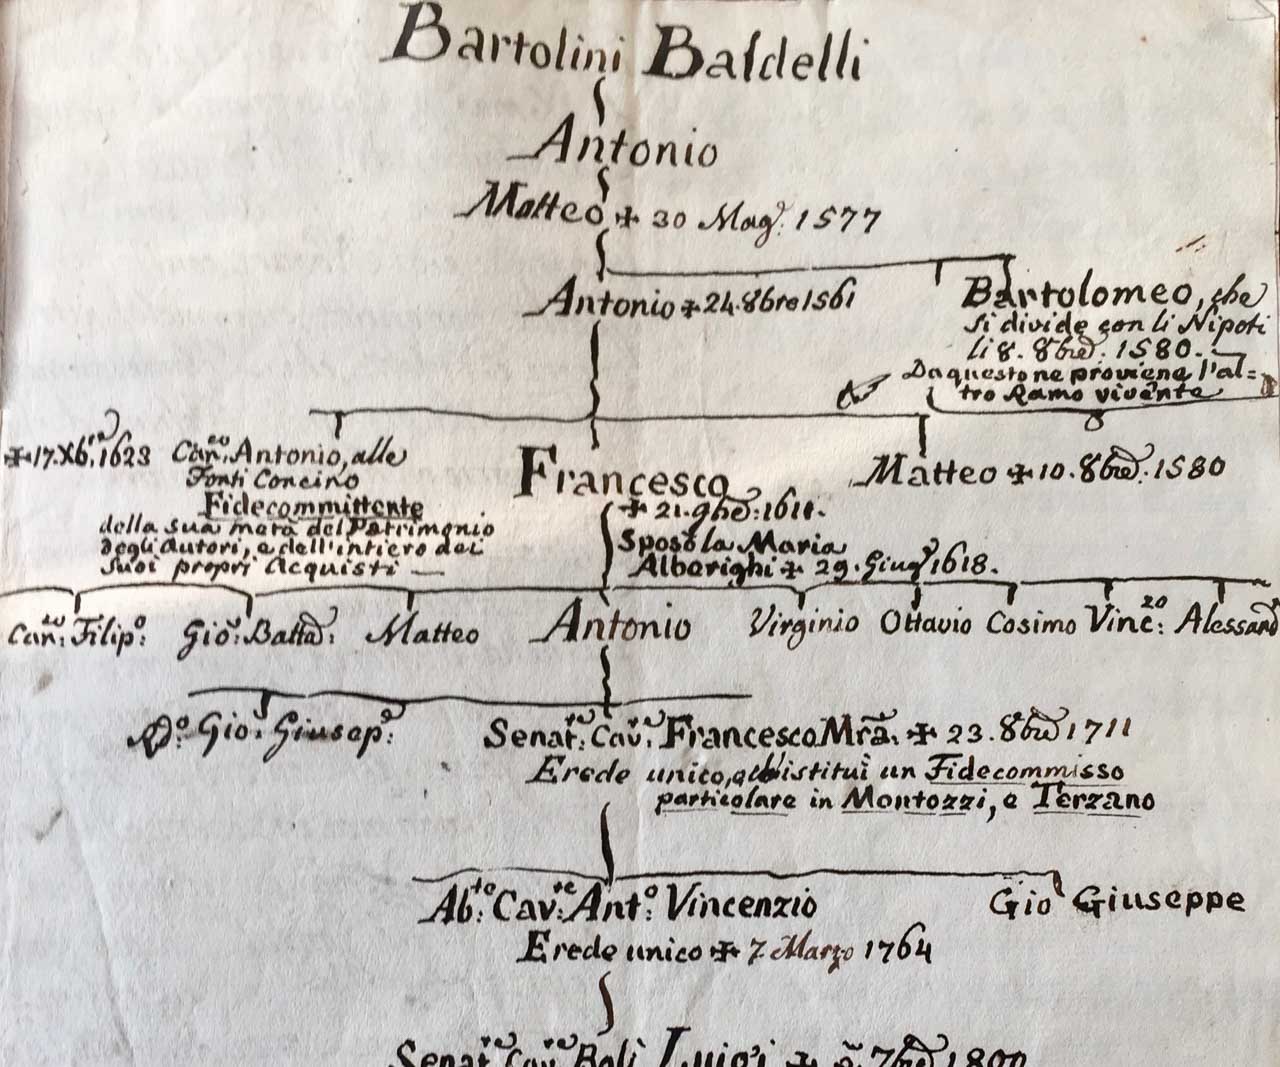 Bartolini Baldelli
Antonio
Matteo ✠ 30 Mag.º 1577
Antonio ✠ 24. 8bre 1561
Bartolomeo, che
si divide con li Nipoti
li 8. 8bre. 1580.
Da questo ne proviene l'al=
tro Ramo vivente
✠ 17. Xb.re 1623
Can.co Antonio, alle
Fonti Concino
Fidecommittente
della sua metà del Patrimonio
degli Autori, e dell'intiero dei
Suoi propri Acquisti —
Francesco
✠ 21. 9bre: 1611.
Sposò la Maria
Alberighi ✠ 29. Giug.º 1618.
Matteo ✠ 10. 8bre. 1580
Can.co Filip.º Gio: Batta: Matteo Antonio Virginio Ottavio Cosimo Vinc.zo Alessand.º
Gio: Giusep.e
Senat.re Cav.re Francesco Mra. ✠ 23. 8bre 1711
Erede unico, istituì un Fidecommisso
particolare in Montozzi, e Terzano
Ab.te Cav.re Ant.º Vincenzio
Gio Giuseppe
Erede unico ✠ 7. Marzo 1764
Senat.re Cav.re Balì Luigi ✠ 7bre 1800